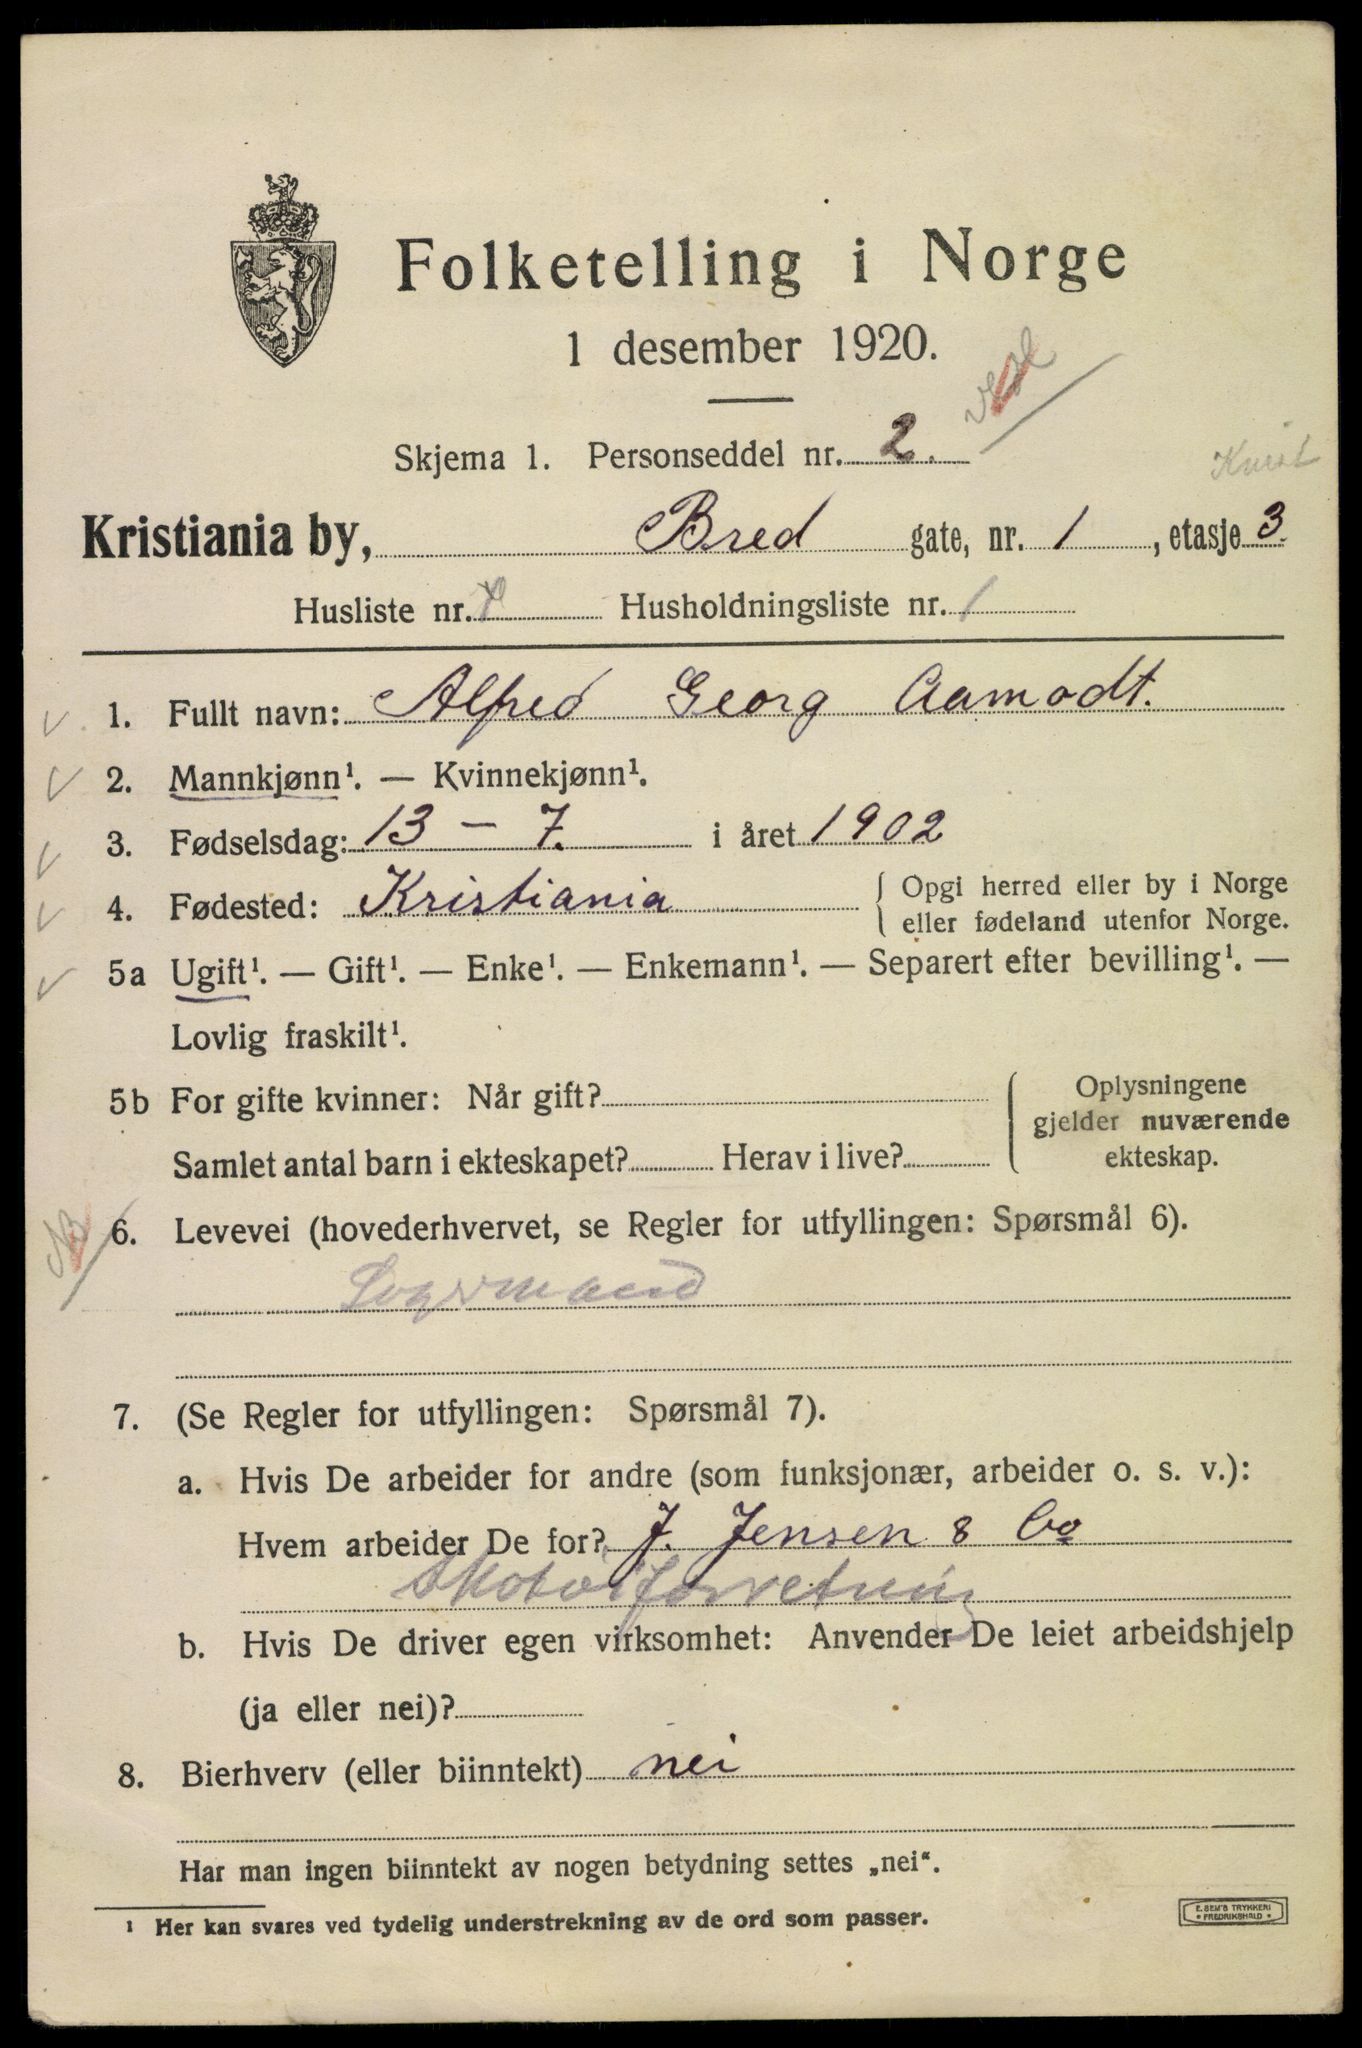 Folketelling i Norge
1 desember 1920.
Skjema 1. Personseddel nr. 2.
Kvist
Kristiania by, Bred gate, nr. 1, etasje 3
Husliste nr. Husholdningsliste nr. 1
1. Fullt navn: Alfred Georg Aamodt.
2. Mannkjønn¹. — Kvinnekjønn¹.
3. Fødselsdag: 13 – 7. i året 1902
4. Fødested: Kristiania { Opgi herred eller by i Norge
eller fødeland utenfor Norge.
5a Ugift¹. — Gift¹. — Enke¹. — Enkemann¹. — Separert efter bevilling¹. —
Lovlig fraskilt¹.
5b For gifte kvinner: Når gift?
Samlet antal barn i ekteskapet? Herav i live?
Oplysningene
gjelder nuværende
ekteskap.
6. Levevei (hovederhvervet, se Regler for utfyllingen: Spørsmål 6).
7. (Se Regler for utfyllingen: Spørsmål 7).
a. Hvis De arbeider for andre (som funksjonær, arbeider o. s. v.):
Hvem arbeider De for? J. Jensen & Co
Skotøiforretning
b. Hvis De driver egen virksomhet: Anvender De leiet arbeidshjelp
(ja eller nei)?
8. Bierhverv (eller biinntekt) nei
Har man ingen biinntekt av nogen betydning settes „nei“.
¹ Her kan svares ved tydelig understrekning av de ord som passer.
E. SEM'S TRYKKERI
FREDRIKSHALD